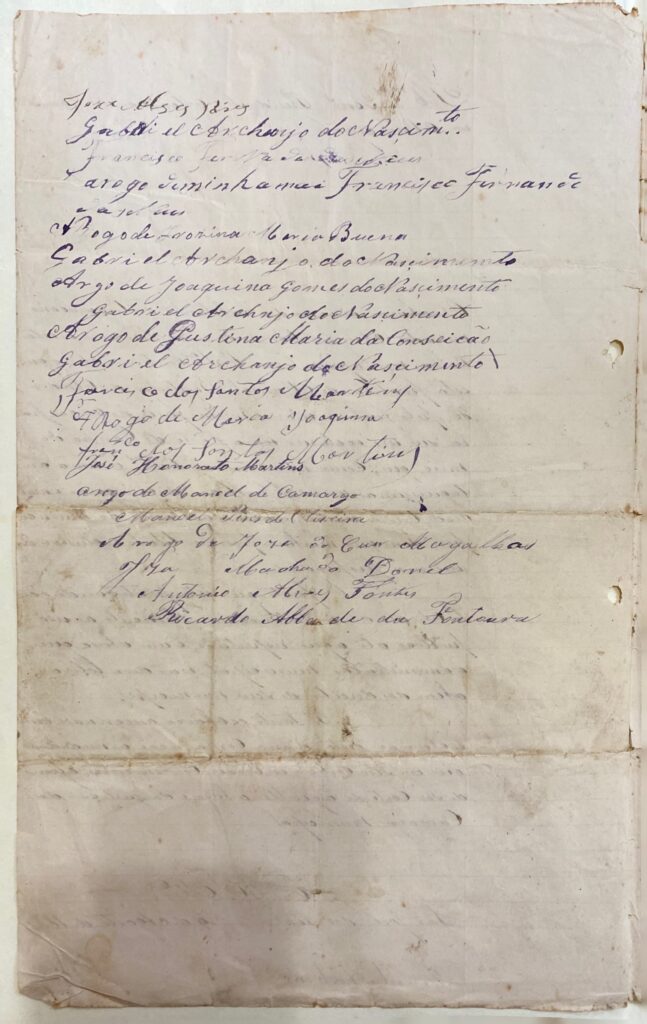 Joze Alves
Gabri el Archanjo do Nascim.to
Francisco
a rogo de minha mai Francisco Fernand
Arogo de Maria Buena
Gabri el Archanjo do Nascimento
Argo de Joaquina Gomes do Nascimento
Gabri el Archnjo do Nascimento
Arogo de Justina Maria da Conseicão
Gabri el Archanjo do Nascimento
Francisco dos Santos Martins
A Rogo de Maria Joaquina
Fran.co dos Santos Martins
José Honorato Martins
arogo de Manoel de Camargo
Manoel de Oliveira
A rogo de Joze Magalhas
Machado
Antonio Alves Fontes
Ricardo da Fontoura